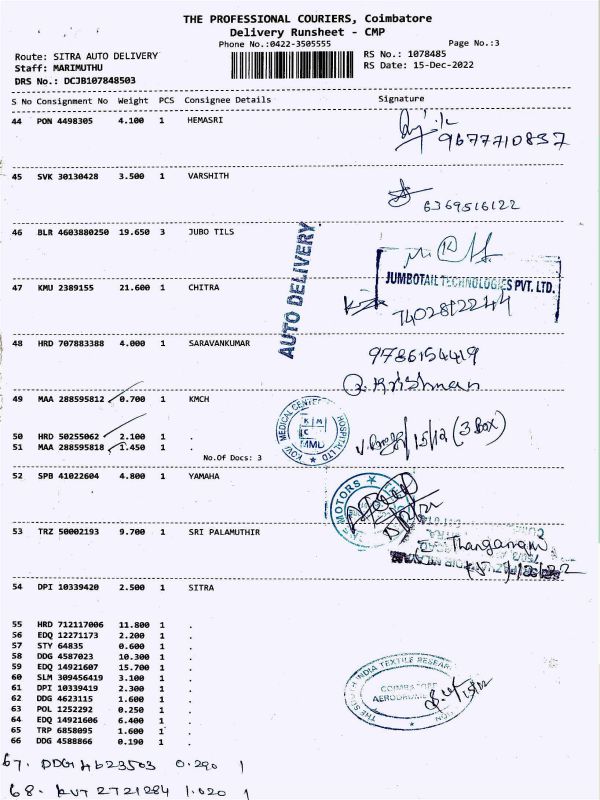 THE PROFESSIONAL COURIERS, Coimbatore
Delivery Runsheet - CMP
Phone No.:0422-3505555
Page No.:3
Route: SITRA AUTO DELIVERY
RS No.: 1078485
Staff: MARIMUTHU
RS Date: 15-Dec-2022
DRS No.: DCJB107848503
S No Consignment No Weight PCS Consignee Details Signature
44 PON 4498305 4.100 1 HEMASRI
9677710837
45 SVK 30130428 3.500 1 VARSHITH
6369516122
46 BLR 4603880250 19.650 3 JUBO TILS
AUTO DELIVERY
JUMBOTAIL TECHNOLOGIES PVT. LTD.
47 KMU 2389155 21.600 1 CHITRA
7402812244
48 HRD 707883388 4.000 1 SARAVANKUMAR
9786154419
R. Krishnan
49 MAA 288595812 0.700 1 KMCH
KOVAI MEDICAL CENTER HOSPITAL LTD
KMC
MMD
15/12 (3 Box)
50 HRD 50255062 2.100 1 .
51 MAA 288595818 1.450 1 .
No.Of Docs: 3
52 SPB 41022604 4.800 1 YAMAHA
MOTORS
15/12/22
53 TRZ 50002193 9.700 1 SRI PALAMUTHIR
Thangaram
54 DPI 10339420 2.500 1 SITRA
55 HRD 712117006 11.800 1 .
56 EDQ 12271173 2.200 1 .
57 STY 64835 0.600 1 .
58 DDG 4587023 10.300 1 .
59 EDQ 14921607 15.700 1 .
60 SLM 309456419 3.100 1 .
61 DPI 10339419 2.300 1 .
62 DDG 4623115 1.600 1 .
63 POL 1252292 0.250 1 .
64 EDQ 14921606 6.400 1 .
65 TRP 6858095 1.600 1 .
66 DDG 4588866 0.190 1 .
THE SOUTH INDIA TEXTILE RESEAR
COIMBATORE
AERODROME
67. DDG 4623503 0.290 1
68. KVT 2721284 1.020 1